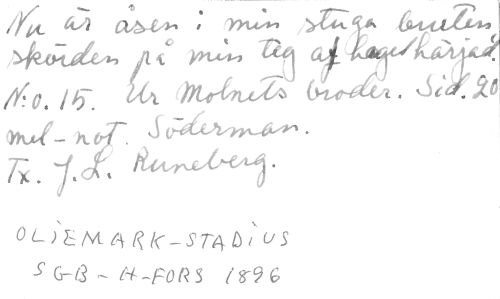 Nu är åsen i min stuga bruten
skörden på min teg af hagel härjad.
N:o. 15. Ur Molnets broder. Sid. 20
mel-not. Söderman.
Tx. J. L. Runeberg.
OLIEMARK-STADIUS
SGB-H-FORS 1896